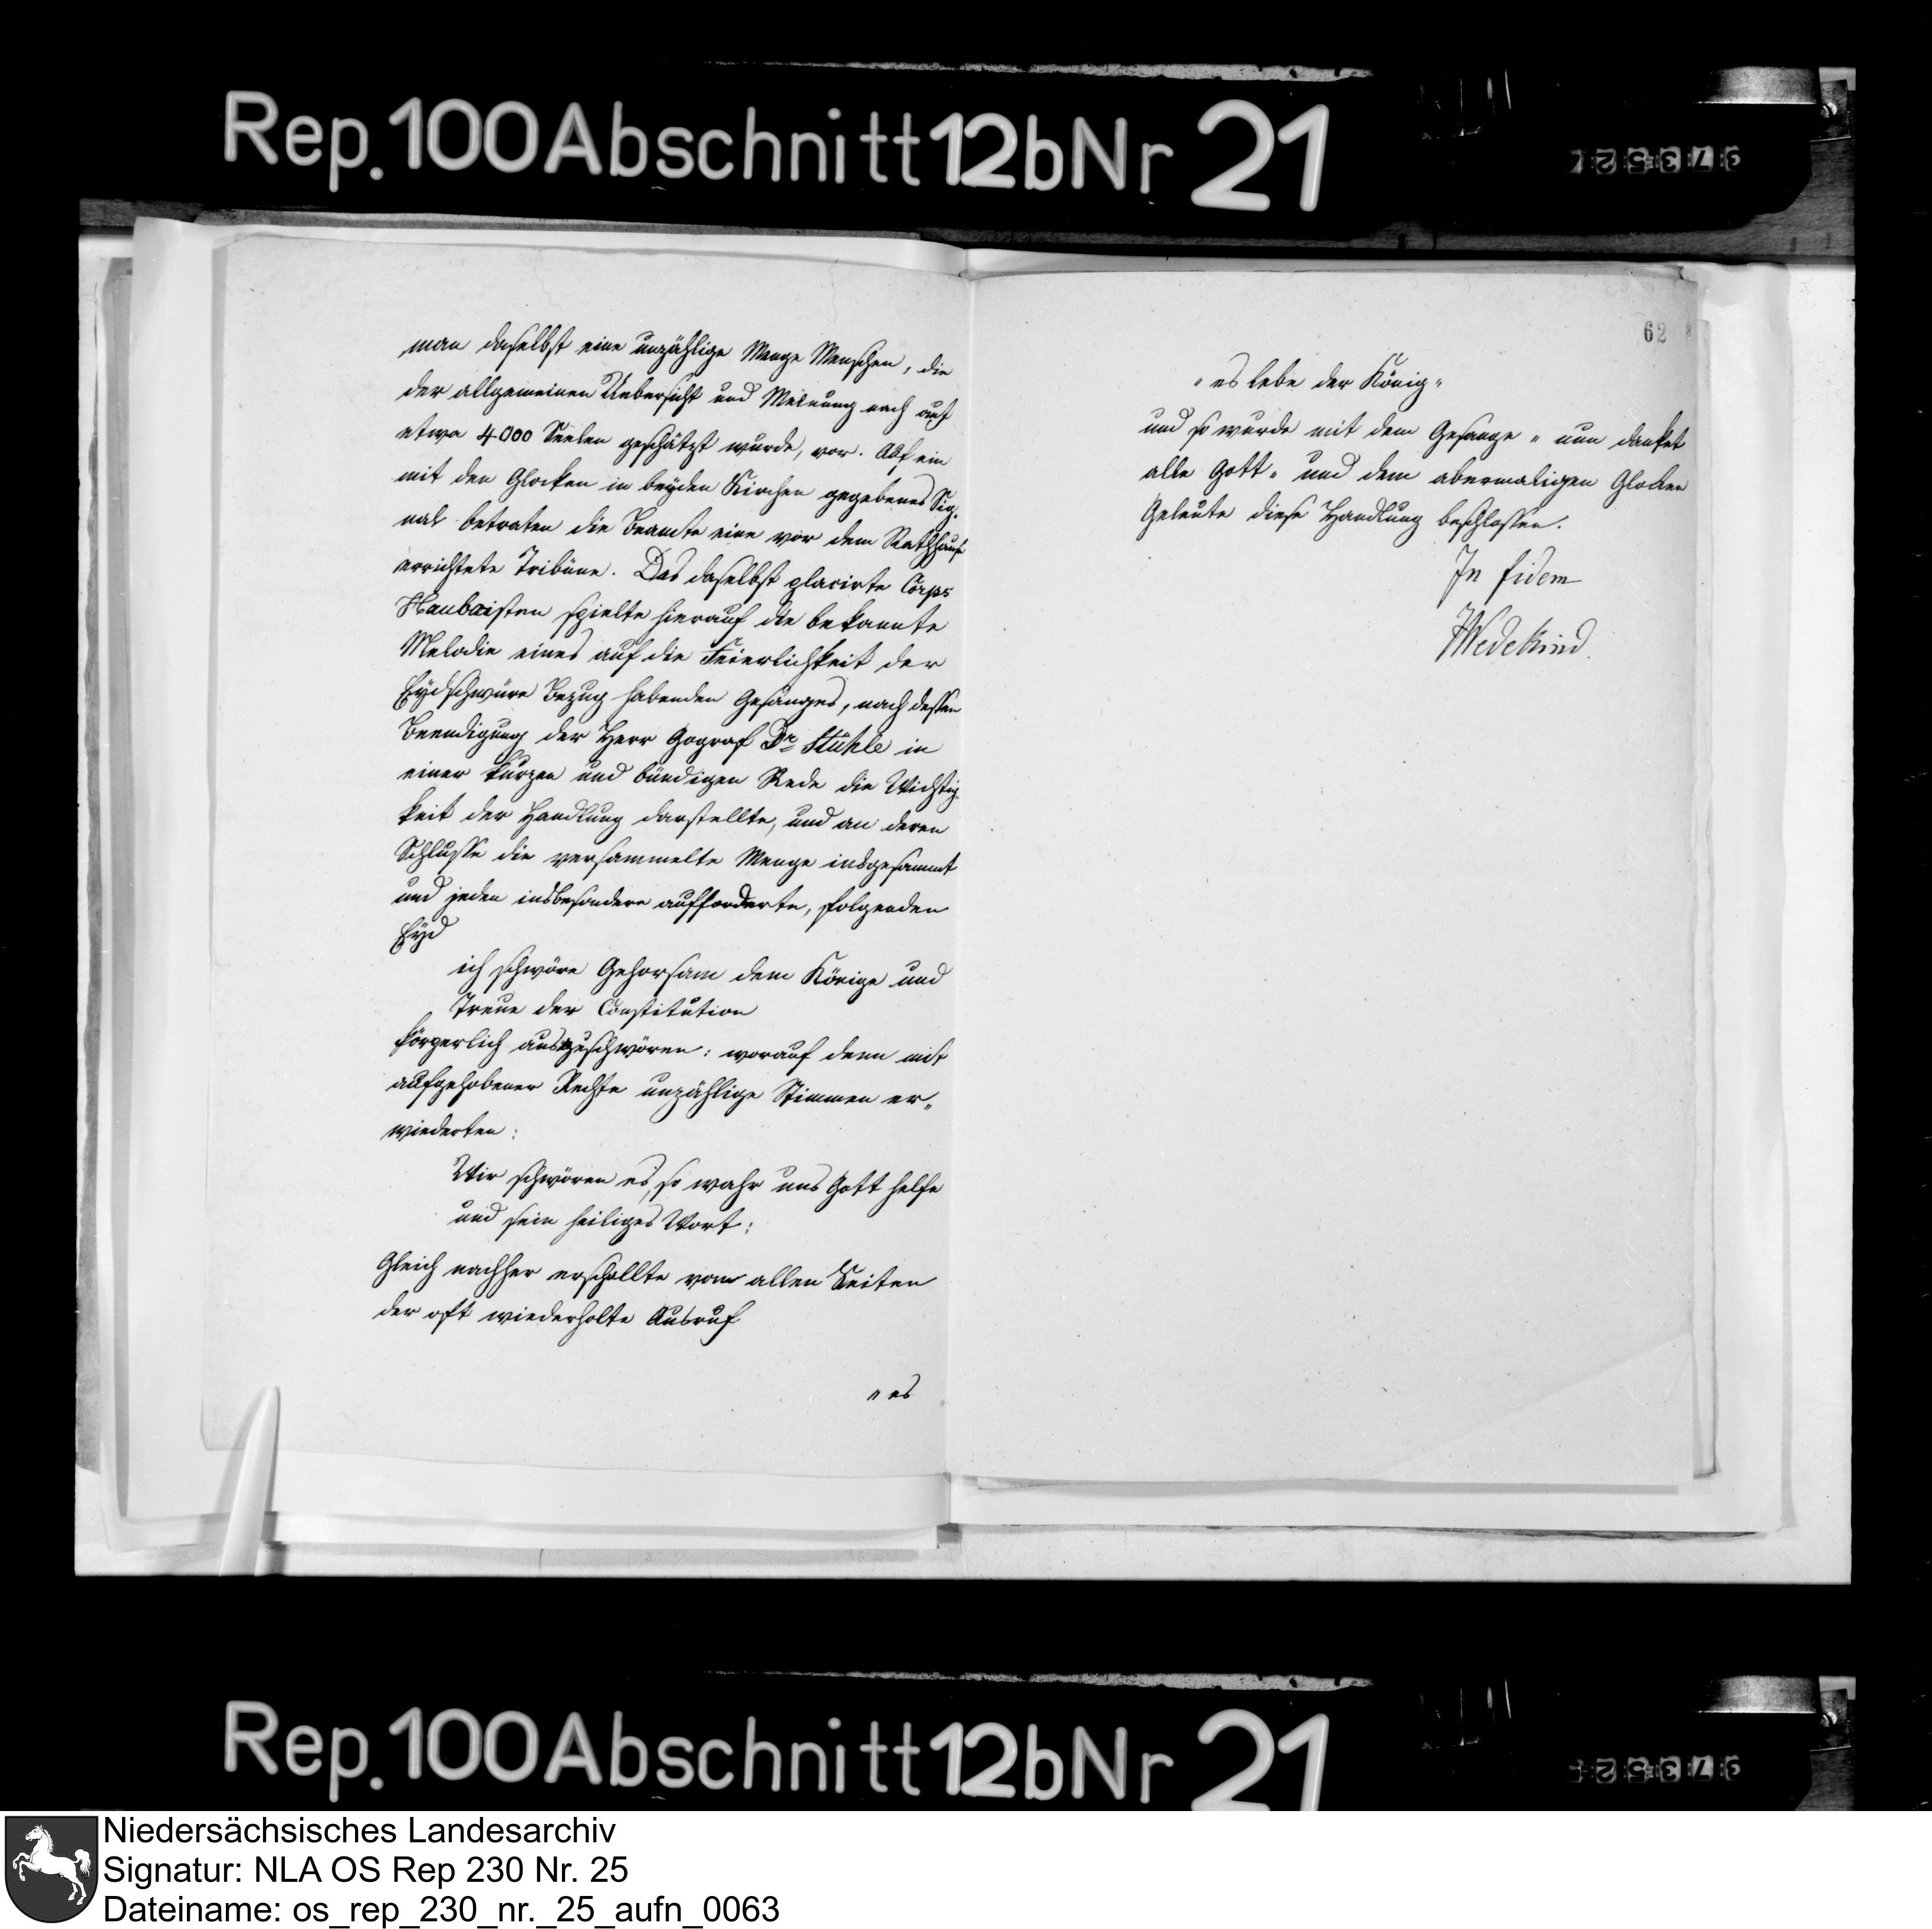 Rep. 100 Abschnitt 12b Nr 21
man daselbst eine unzählige Menge Menschen, die
der allgemeinen Uebersicht und Meinung nach auf
etwa 4000 Seelen geschätzt wurde, vor. Auf ein
mit den Glocken in beyden Kirchen gegebenes Sig-
nal betraten die Beamte eine vor dem Rathhause
errichtete Tribüne. Das daselbst placirte Corps
Haubaisten spielte hierauf die bekannte
Melodie eines auf die Feierlichkeit der
Eydschwüre Bezug habenden Gesanges, nach dessen
Beendigung der Herr Gograf Dr Stühle in
einer kurzen und bündigen Rede die Wichtig-
keit der Handlung darstellte, und an deren
Schlusse die versammelte Menge insgesammt
und jeden insbesondere aufforderte, folgenden
Eyd
ich schwöre Gehorsam dem Könige und
Treue der Constitution
körperlich auszuschwören: worauf denn mit
aufgehobener Rechte unzählige Stimmen er-
wiederten:
Wir schwören es, so wahr uns Gott helfe
und sein heiliges Wort:
Gleich nachher erschallte von allen Seiten
der oft wiederholte Ausruf
„ es
62
„ es lebe der König „
und so wurde mit dem Gesange „ nun danket
alle Gott „ und dem abermaligen Glocken
Geleute diese Handlung beschlossen.
In fidem
Wedekind.
Rep. 100 Abschnitt 12b Nr 21
Niedersächsisches Landesarchiv
Signatur: NLA OS Rep 230 Nr. 25
Dateiname: os_rep_230_nr._25_aufn_0063